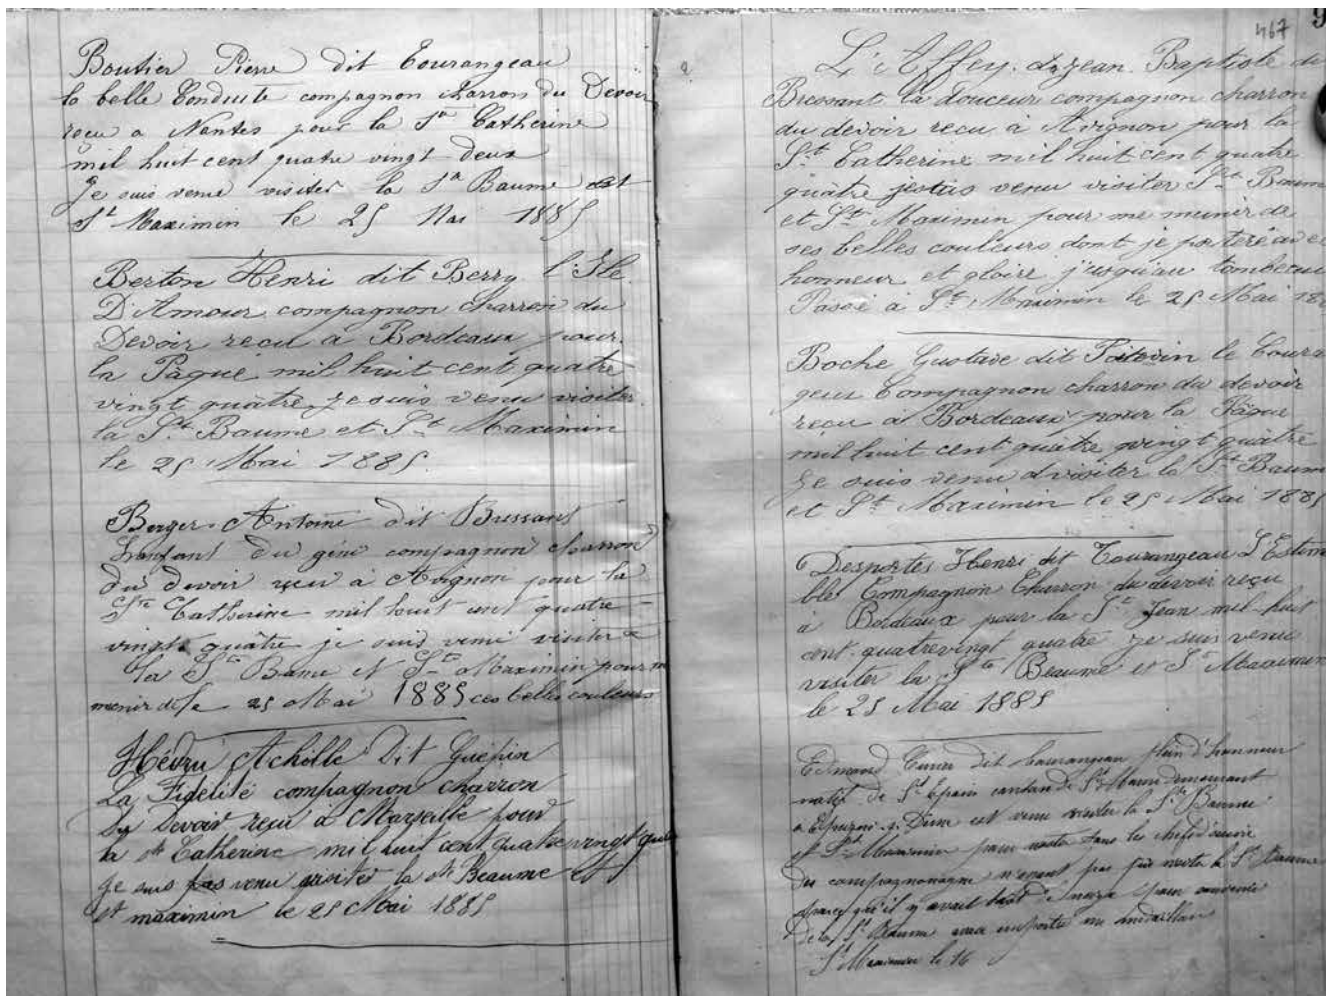 Boutier Pierre dit Tourangeau
la belle Conduite compagnon charron du Devoir
reçu a Nantes pour la Ste Catherine
mil huit cent quatre vingt deux
Je suis venu visiter la Ste Baume et
St Maximin le 25 Mai 1885
Berton Henri dit Berry l'Ile
D'Amour compagnon charron du
Devoir reçu à Bordeaux pour
la Pâque mil huit cent quatre
vingt quatre je suis venu visiter
la Ste Baume et St Maximin
le 25 Mai 1885.
Berger Antoine dit Bressant
Lanfant du génie compagnon charron
du devoir reçu à Avignon pour la
Ste Catherine mil huit cent quatre
vingt quâtre je suis venu visiter
la Ste Bame et St Maximin pour m
munir de le 25 Mai 1885 ces belle couleurs
Hédru Achille Dit Guépin
La Fidélité compagnon charron
Du Devoir reçu à Marseille pour
la ste Catherine mil huit cent quatre vingt
je suis pas venu visiter la ste Beaume et
st maximin le 25 Mai 1885
467 9
L'Affey. Jean Baptiste di
Bressant la douceur compagnon charron
du devoir recu à Avignon pour la
Ste Catherine mil huit cent quatre
quâtre venu visiter Ste Baum
et St Maximin pour me munir de
ses belles couleurs dont je porteré avec
honneur et gloire j'usqu'au tombeau
Passé à St Maximin le 25 Mai 18
Boche Gustave dit Poitevin le Coura
geux Compagnon charron du devoir
reçu à Bordeaux pour la Pâque
mil huit cent quâtre vingt quâtre
Je suis venu visiter la Ste Baum
et St Maximin le 25 Mai 1885
Desportes Henri dit Tourangeau L'Estim
ble Compagnon Charron du devoir reçu
à Bordeaux pour la St Jean mil-huit
cent-quatrevingt quatre je suis venu
visiter la Ste Beaume et St Maximin
le 25 Mai 1885
Edmond dit Tourangeau plein d'honneur
natif de St Epain canton de Ste Maure demeurant
a est venu visiter la Ste Baume
et St Maximin pour visiter tous les chefs d'oeuvre
du compagnonnage pas visité la Ste Baume
parce qu'il y avait trop de neige pour
de la Ste Baume un médaillon
St Maximin le 16